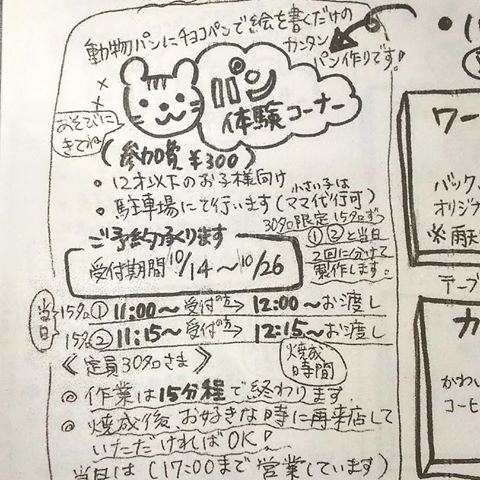 動物パンにチョコペンで絵を書くだけの
カンタン
パン作りです!
パン
体験コーナー
おそびに
きてね
(参加費 ¥300)
• 12才以下のお子様向け
• 駐車場にて行います(小さい子は
ママ代行可)
30名限定 15名ずつ
①②と当日
2回に分けて
製作します。
ご予約承ります
受付期間 10/14〜10/26
当日
15名① 11:00〜受付の方→12:00〜お渡し
15名② 11:15〜受付の方→12:15〜お渡し
《定員30名さま》
焼成
時間
◎ 作業は15分程で終わります
◎ 焼成後、お好きな時に再来店して
いただければOK!
当日は(17:00まで営業しています)
ワー
バック
オリジナ
※雨天
テーブ
カ
かわい
コーヒ